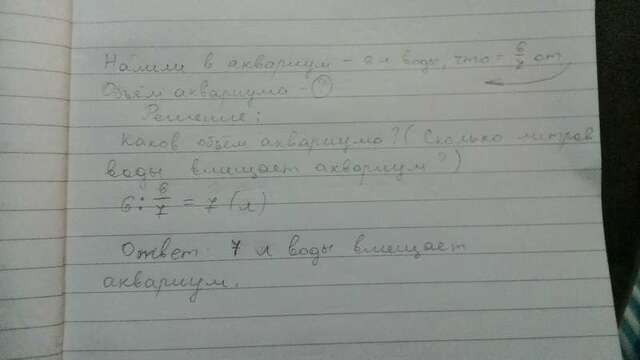 Налили в аквариум - 6 л воды, что = 6/7 от
Объём аквариума - ?
Решение:
Каков объём аквариума? (Сколько литров
воды вмещает аквариум?)
6 : 6/7 = 7 (л)
Ответ: 7 л воды вмещает
аквариум.